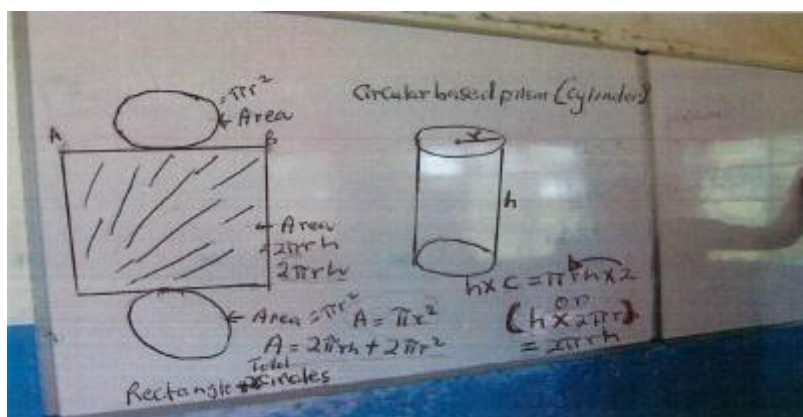 = πr²
← Area
A
B
← Area
= 2πrh
2πrh
← Area = πr²
A = πr²
A = 2πrh + 2πr²
Total
Rectangle circles
Circular based prism (cylinder)
r
h
h x C = πrh x 2
or
(h x 2πr)
= 2πrh